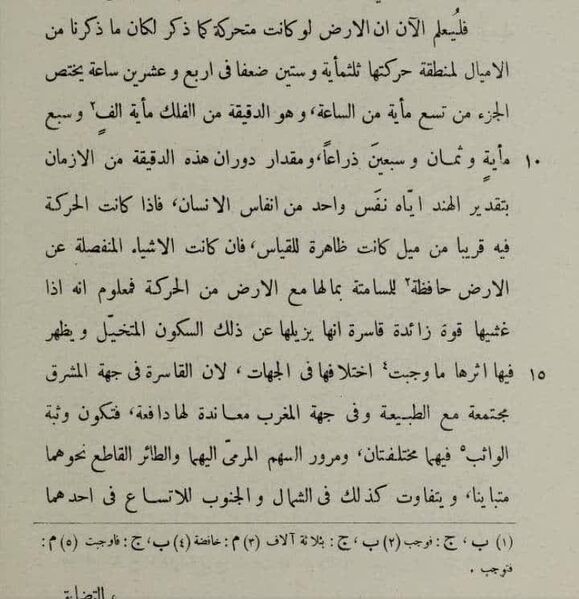 فلْيُعلم الآن ان الارض لو كانت متحركة كما ذكر لكان ما ذكرنا من
الاميال لمنطقة حركتها ثلثمأية وستين ضعفا فى اربع وعشرين ساعة يختص
الجزء من تسع مأية من الساعة، وهو الدقيقة من الفلك مأية الفٍ٢ وسبع
مأيةٍ وثمان وسبعينَ ذراعاً، ومقدار دوران هذه الدقيقة من الازمان ١٠
بتقدير الهند ايّاه نفَس واحد من انفاس الانسان، فاذا كانت الحركة
فيه قريبا من ميل كانت ظاهرة للقياس، فان كانت الاشياء المنفصلة عن
الارض حافظة٣ للسامتة بمالها مع الارض من الحركة فمعلوم انه اذا
غشيها قوة زائدة قاسرة انها يزيلها عن ذلك السكون المتخيّل ويظهر
فيها اثرها ما وجبت٤ اختلافها فى الجهات، لان القاسرة فى جهة المشرق ١٥
مجتمعة مع الطبيعة وفى جهة المغرب معاندة لها دافعة، فتكون وثبة
الواثب٥ فيهما مختلفتان، ومرور السهم المرمىّ اليهما والطائر القاطع نحوهما
متباينا، ويتفاوت كذلك فى الشمال والجنوب للاتساع فى احدهما
(١) ب، ج: فوجب (٢) ب، ج: بثلاثة آلاف (٣) م: خافضة (٤) ب، ج: فاوجبت (٥) م:
فتوجب.